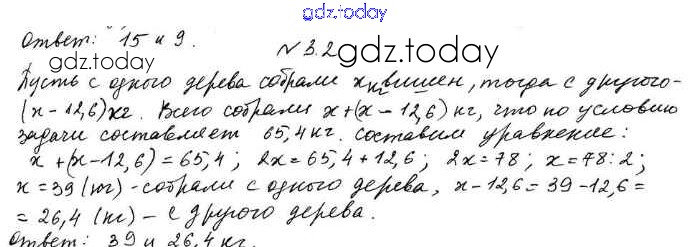 gdz.today
Ответ: 15 и 9.
№ 3.2
gdz.today
gdz.today
Пусть с одного дерева собрали x кг вишен, тогда с другого -
(x - 12,6) кг. Всего собрали x + (x - 12,6) кг, что по условию
задачи составляет 65,4 кг. составим уравнение:
x + (x - 12,6) = 65,4; 2x = 65,4 + 12,6; 2x = 78; x = 78 : 2;
x = 39 (кг) - собрали с одного дерева, x - 12,6 = 39 - 12,6 =
= 26,4 (кг) - с другого дерева.
Ответ: 39 и 26,4 кг.